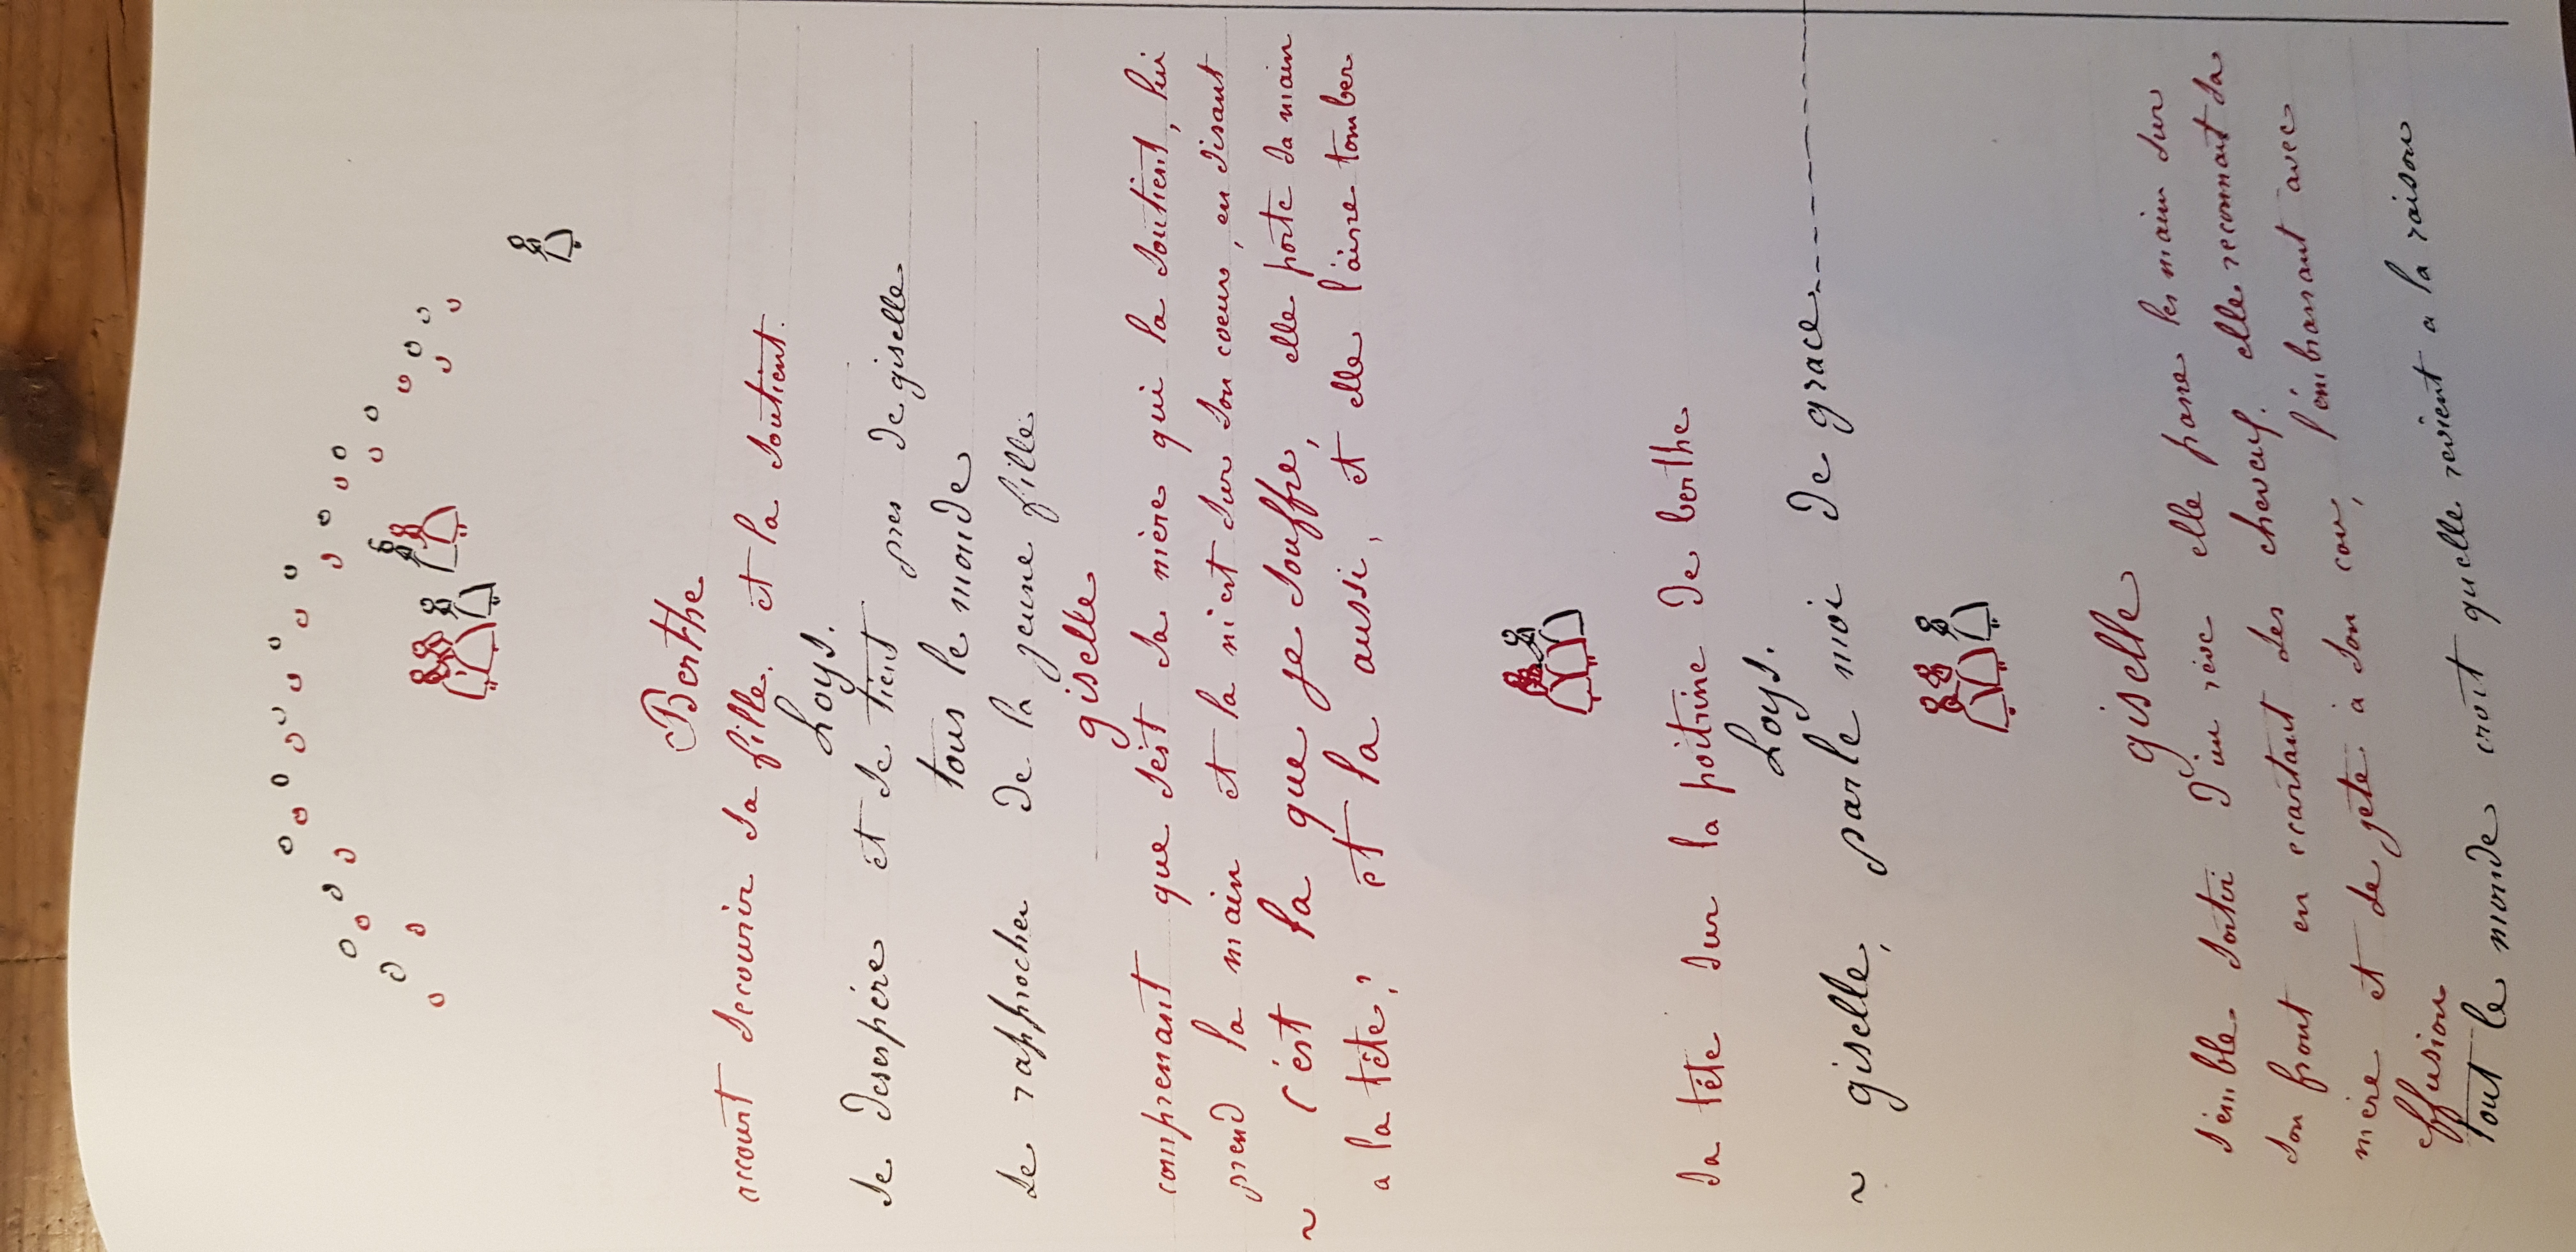 Berthe
accourt secourir sa fille. et la soutient.
Loys.
se desespére et se tient pres de giselle
tous le monde
se rapproche de la jeune fille
giselle
comprenant que s'est sa mère qui la soutient, lui
prend la main et la m'est sur son coeur, en disant
~ c'est la que je souffre, elle porte sa main
a la tête, et la aussi, et elle l'aisse tomber
sa téte sur la poitrine de berthe
Loys.
~ giselle, parle moi de grace
giselle
s'emble sortir d'un réve elle passe les main sur
son front en ecartant ses cheveux. elle reconnait sa
mère et se jete à son cou, l'émbrassant avec
effusion
tout le monde croit quelle revient a la raison